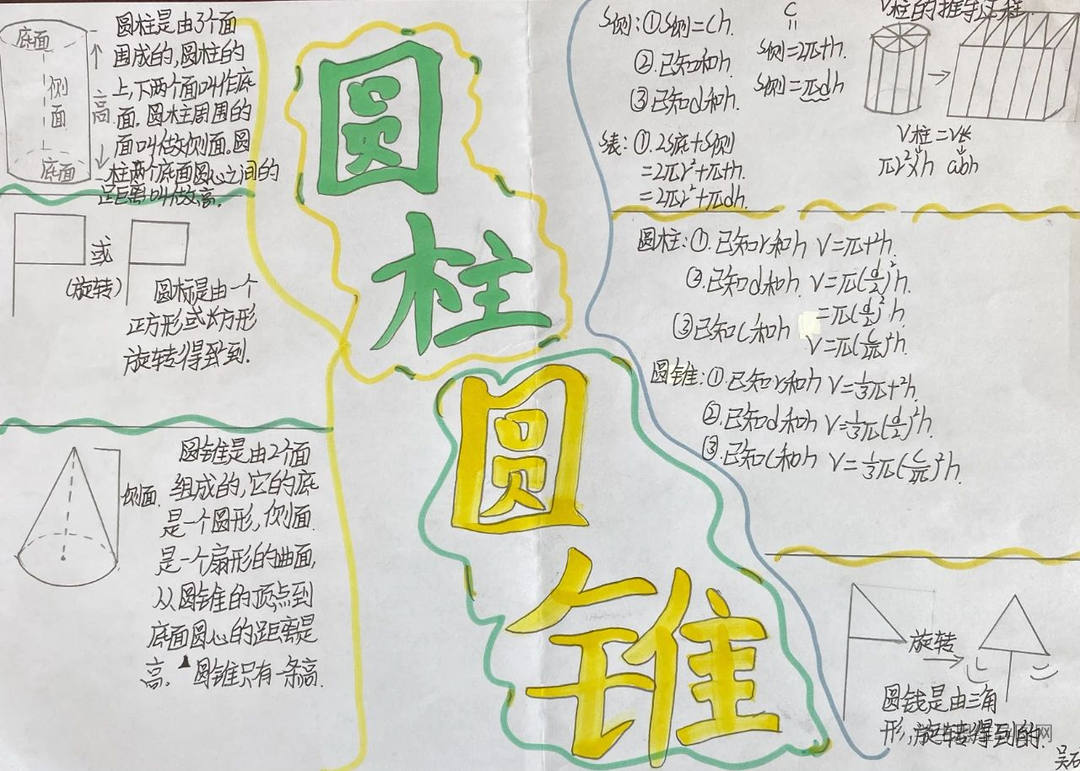 底面
侧面
高
底面
圆柱是由3个面
围成的,圆柱的
上,下两个面叫作底
面。圆柱周围的
面叫做侧面。圆
柱两个底面圆心之间的
距离叫做高。
或
(旋转)
圆标是由一个
正方形或长方形
旋转得到.
侧面.
圆锥是由2个面
组成的,它的底
是一个圆形,侧面
是一个扇形的曲面,
从圆锥的顶点到
底面圆心的距离是
高。圆锥只有一条高.
圆
柱
圆
锥
S侧:①S侧=Ch.
②.已知r和h.
③已知d和h.
C
=
S侧=2πrh.
S侧=πdh
S表:①.2S底+S侧
=2πr²+πdh.
V柱的推导过程
V柱=V长
πr²×h abh
圆柱:①.已知r和h V=πr²h.
②.已知d和h V=π(d/2)²h.
=π(d/2)²h.
③已知C和h V=π(C/2π)²h.
圆锥:①.已知r和h V=1/3πr²h
②.已知d和h V=1/3π(d/2)²h.
③.已知C和h V=1/3π(C/2π)²h
旋转
圆钱是由三角
形,旋转得到的.